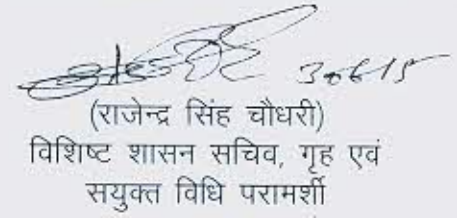 30615
(राजेन्द्र सिंह चौधरी)
विशिष्ट शासन सचिव, गृह एवं
सयुक्त विधि परामर्शी